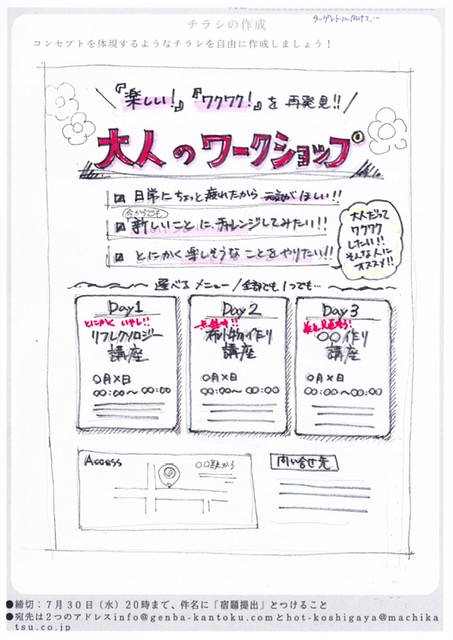 ターゲットに向けて…
チラシの作成
コンセプトを体現するようなチラシを自由に作成しましょう！
『楽しい!』『ワクワク!』を再発見!!
大人のワークショップ
日常にちょっと疲れたから元気がほしい!!
今からでも
新しいことにチャレンジしてみたい!!
とにかく楽しそうなことをやりたい!!
大人だって
ワクワク
したい!!
そんな人に
オススメ!!
選べるメニュー/全部でも1つでも…
Day1
とにかくいやし!!
リフレクソロジー
講座
○月×日
○○:○○〜○○:○○
Day2
布小物作り
講座
○月×日
○○:○○〜○○:○○
Day3
○○作り
講座
○月×日
○○:○○〜○○:○○
Access
○○駅から
問い合せ先
●締切：７月３０日（水）２０時まで、件名に「宿題提出」とつけること
●宛先は２つのアドレスinfo@genba-kantoku.comとhot-koshigaya@machika
tsu.co.jp